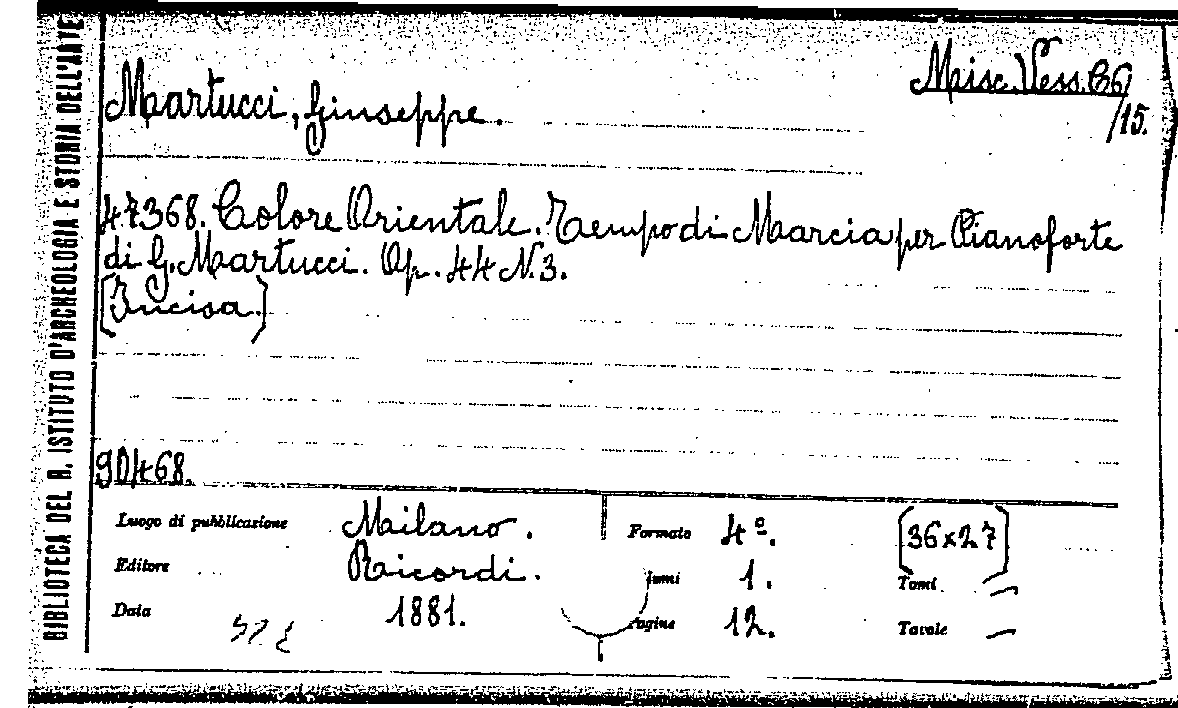 BIBLIOTECA DEL R. ISTITUTO D'ARCHEOLOGIA E STORIA DELL'ARTE
Martucci, Giuseppe.
Misc. Vess. C6/15.
47368. Colore Orientale. Tempo di Marcia per Pianoforte
di G. Martucci. Op. 44 N. 3.
[Incisa.]
90468.
Luogo di pubblicazione Milano. Formato 4º. [36x27]
Editore Ricordi. 1. Tomi —
Data 1881. 12. Tavole —